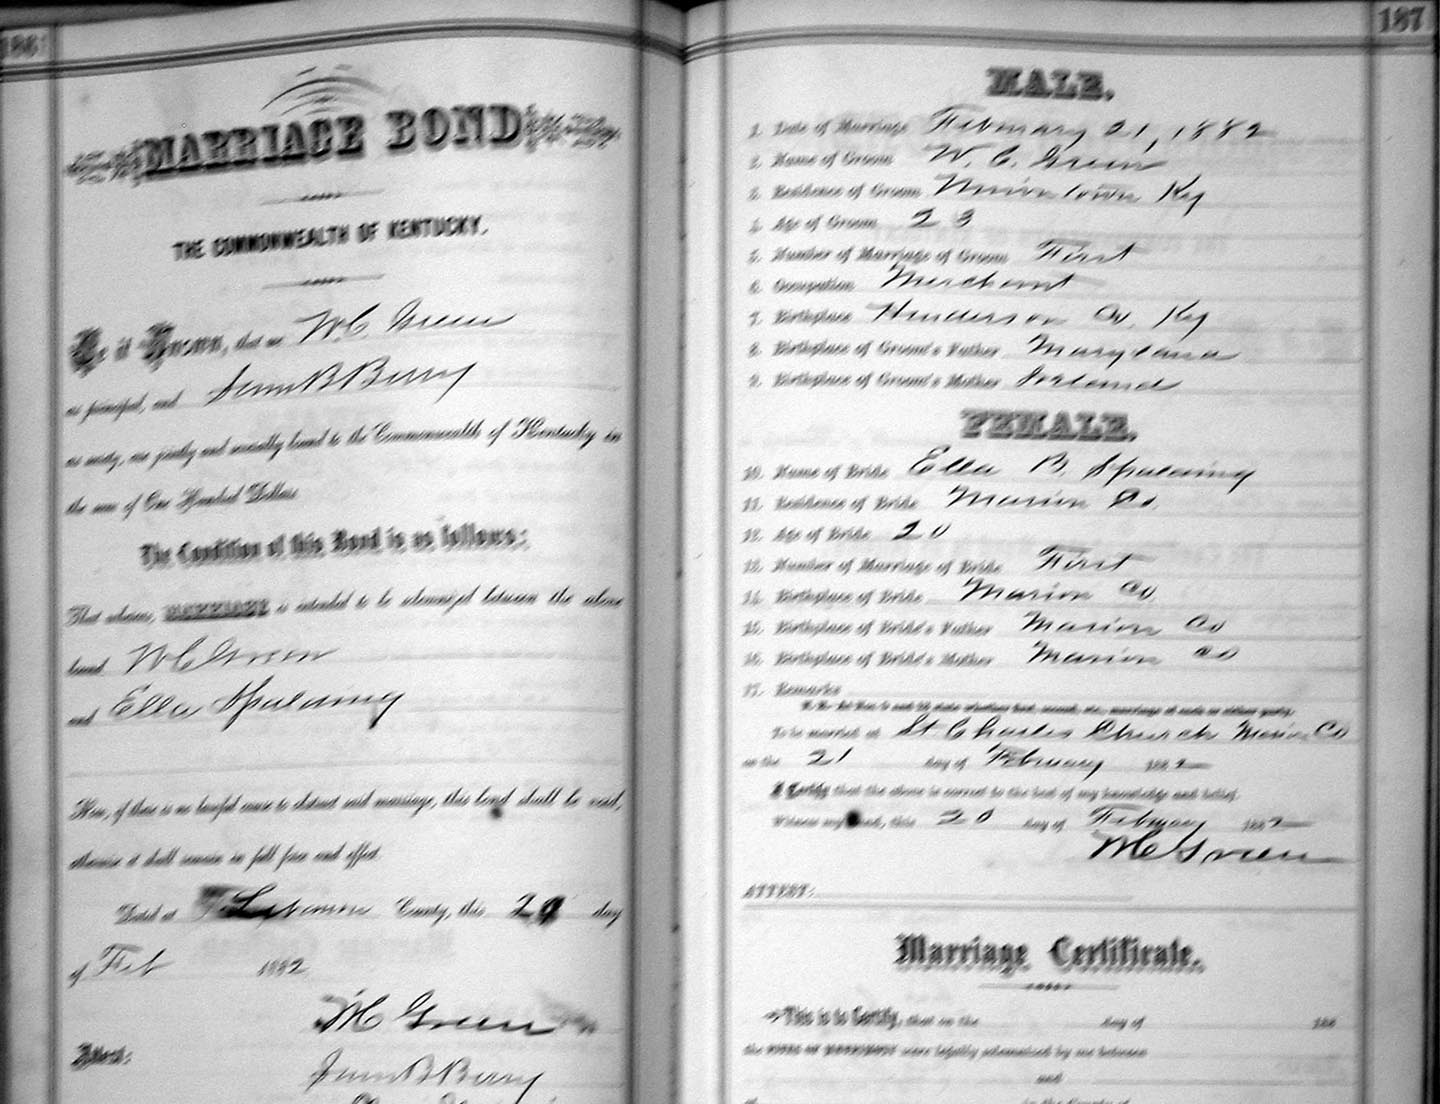 186
MARRIAGE BOND
THE COMMONWEALTH OF KENTUCKY.
Be it Known, that we W C Green
as principal, and B Berry
as surety, are jointly and severally bound to the Commonwealth of Kentucky in
the sum of One Hundred Dollars
The Condition of this Bond is as follows:
That whereas, MARRIAGE is intended to be solemnized between the above
bound W C Green
and Ella Spalding
Now, if there is no lawful cause to obstruct said marriage, this bond shall be void,
otherwise it shall remain in full force and effect.
Dated at Lebanon County, this day
of Feb 1882
W C Green
Attest: B Berry
187
MALE.
1. Date of Marriage February 21, 1882
2. Name of Groom W. C. Green
3. Residence of Groom Ky
4. Age of Groom 23
5. Number of Marriage of Groom First
6. Occupation Merchant
7. Birthplace Henderson Co. Ky
8. Birthplace of Groom's Father Maryland
9. Birthplace of Groom's Mother Ireland
FEMALE.
10. Name of Bride Ella B. Spalding
11. Residence of Bride Marion Co.
12. Age of Bride 20
13. Number of Marriage of Bride First
14. Birthplace of Bride Marion Co.
15. Birthplace of Bride's Father Marion Co
16. Birthplace of Bride's Mother Marion Co
17. Remarks
To be married at St Charles Church Marion Co
on the 21 day of February 1882
I Certify that the above is correct to the best of my knowledge and belief.
Witness my hand, this 20 day of February 1882
W C Green
ATTEST:
Marriage Certificate.
This is to Certify, that on the day of 188
the RITES OF MARRIAGE were legally solemnized by me between
and